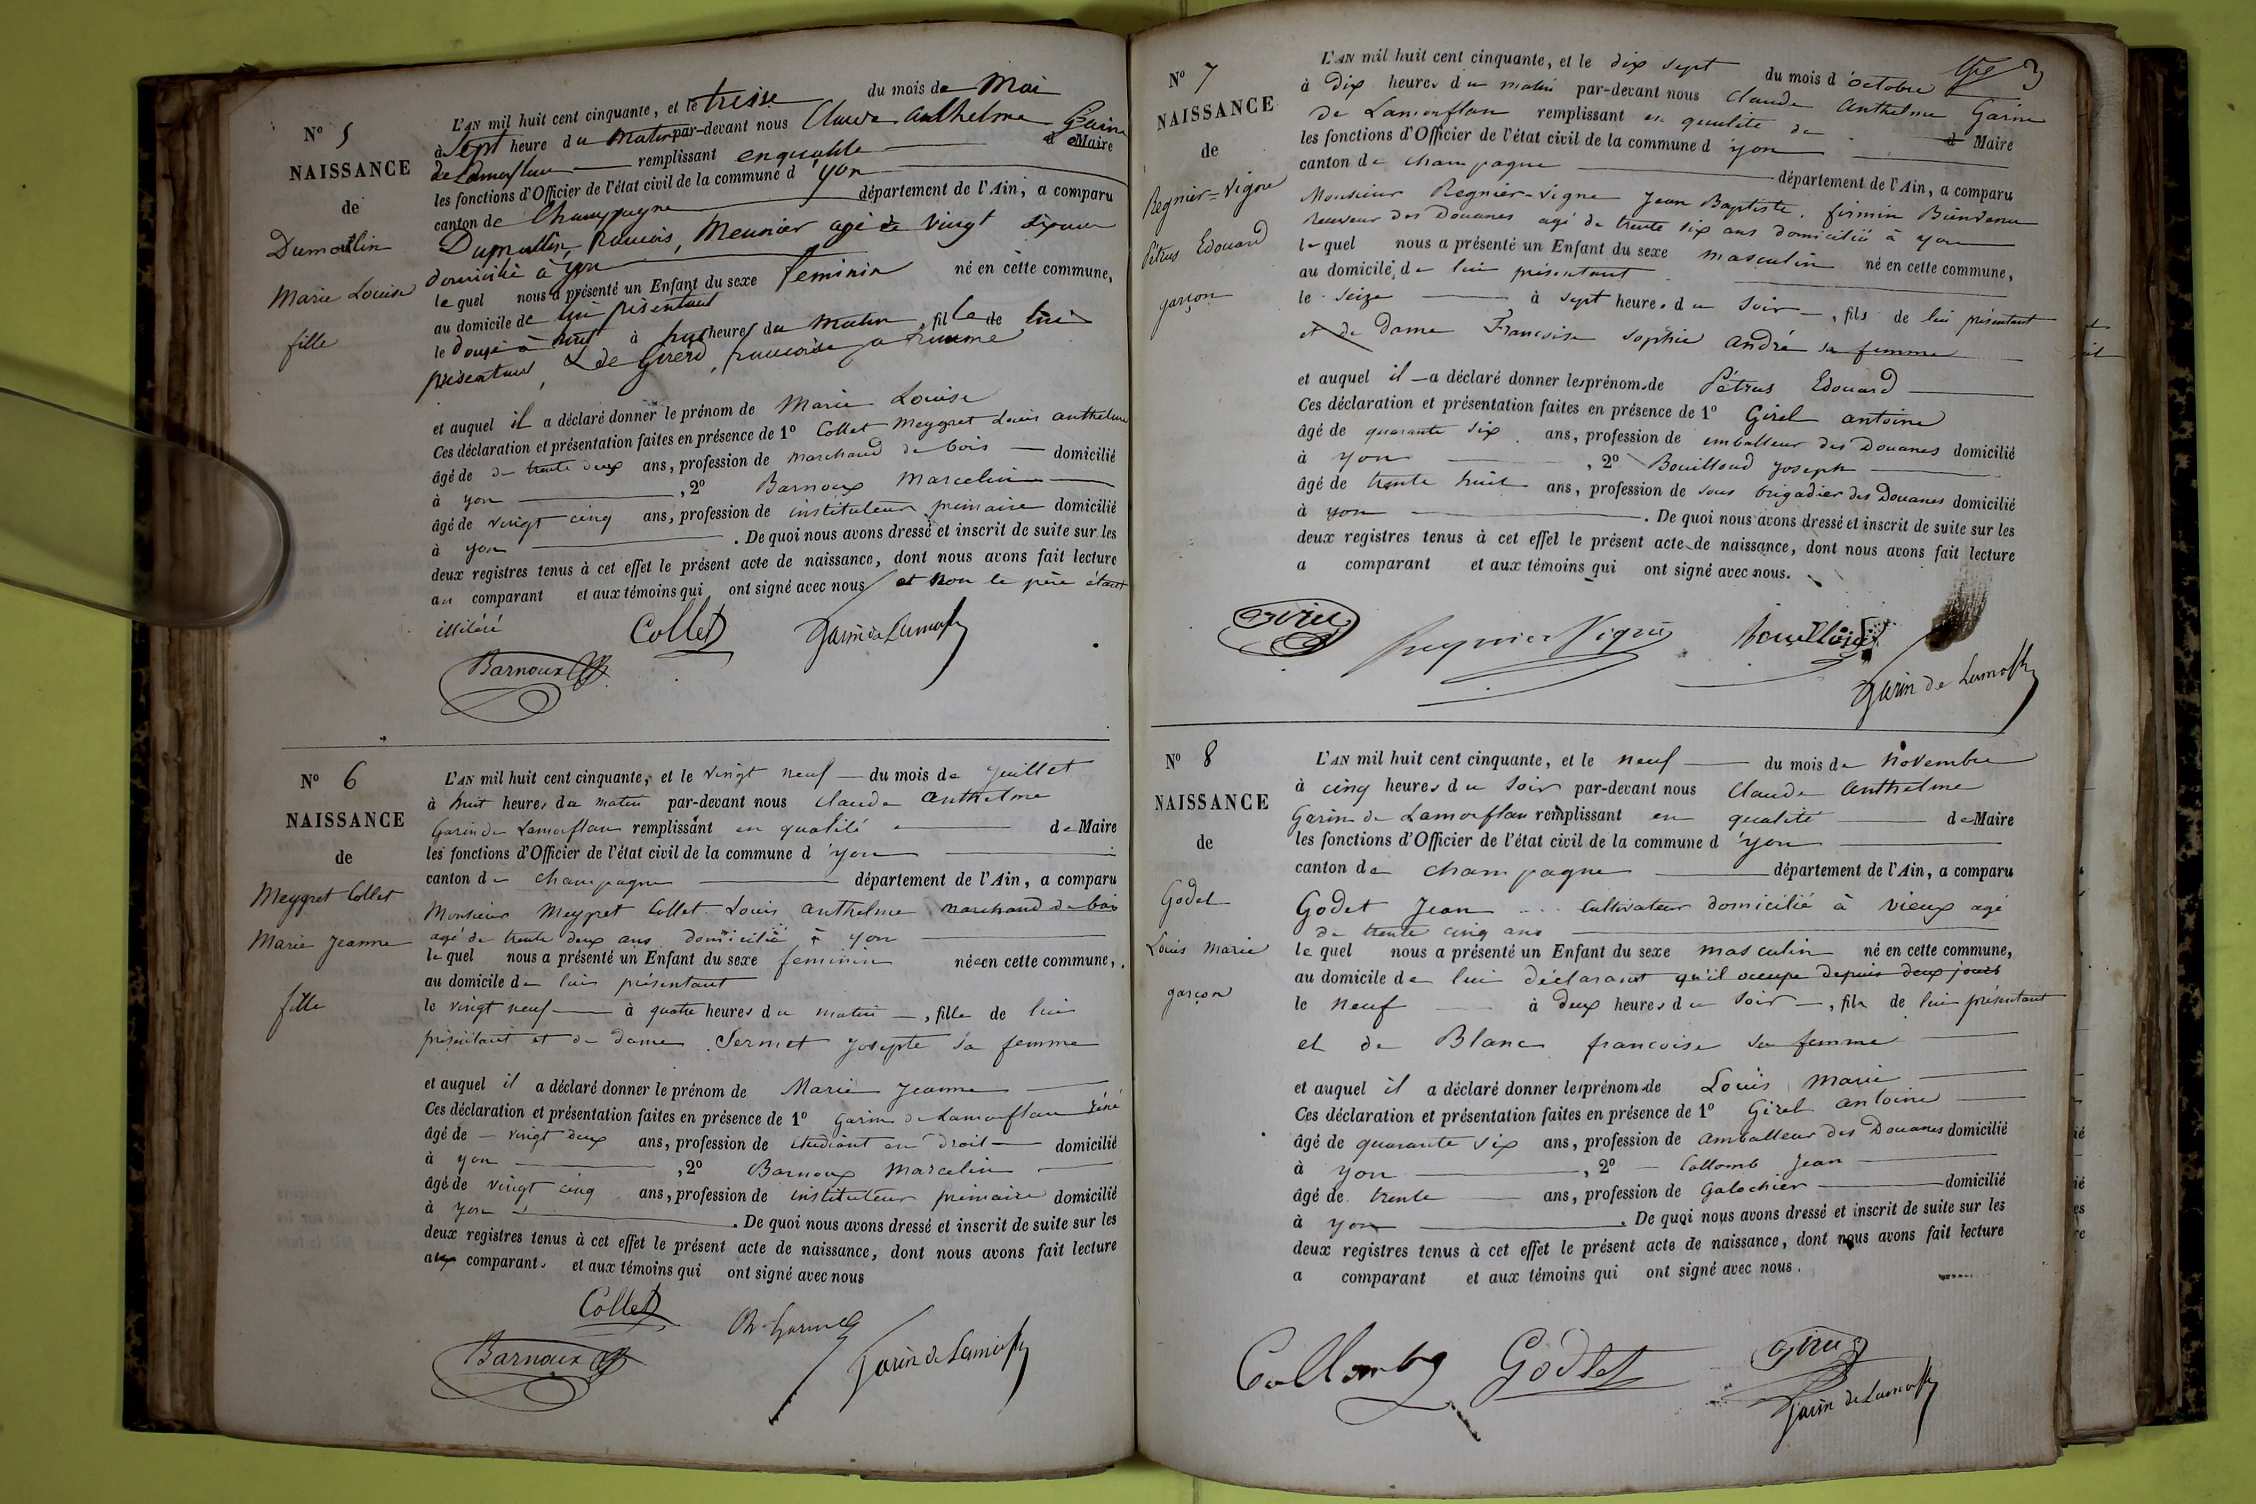 N° 5
NAISSANCE
de
Dumollin
Marie Louise
fille
L'AN mil huit cent cinquante, et le treise du mois de Mai
à Sept heure du Matin par-devant nous Claude Anthelme Garin
de Lamorflan remplissant en qualité de Maire
les fonctions d'Officier de l'état civil de la commune d'yon
canton de Champagne département de l'Ain, a comparu
Dumollin, francois, Meunier agé de vingt
domicilié à yon
lequel nous a présenté un Enfant du sexe feminin né en cette commune,
au domicile de lui présentant
le douze à huit heures du Matin, fille de lui
présentant, & de Girerd, francoise sa femme
et auquel il a déclaré donner le prénom de Marie Louise
Ces déclaration et présentation faites en présence de 1° Collet Meygret Louis anthelme
âgé de de trente deux ans, profession de marchand de bois domicilié
à yon , 2° Barnoux Marcelin
âgé de vingt cinq ans, profession de instituteur primaire domicilié
à yon . De quoi nous avons dressé et inscrit de suite sur les
deux registres tenus à cet effet le présent acte de naissance, dont nous avons fait lecture
au comparant et aux témoins qui ont signé avec nous et non le père étant
illiléré
Collet Garin de Lamorfl
Barnoux
N° 6
NAISSANCE
de
Meygret Collet
Marie Jeanne
fille
L'AN mil huit cent cinquante, et le vingt neuf du mois de juillet
à huit heures du matin par-devant nous claude anthelme
Garin de Lamorflan remplissant en qualité de Maire
les fonctions d'Officier de l'état civil de la commune d'yon
canton de champagne département de l'Ain, a comparu
Monsieur Meygret Collet Louis anthelme marchand de bois
agé de trente deux ans domicilié à yon
lequel nous a présenté un Enfant du sexe feminin née en cette commune,
au domicile de lui présentant
le vingt neuf à quatre heures du matin, fille de lui
présentant et de dame Sermet Josepte sa femme
et auquel il a déclaré donner le prénom de Marie Jeanne
Ces déclaration et présentation faites en présence de 1° Garin de Lamorflan réné
âgé de vingt deux ans, profession de étudiant en droit domicilié
à yon , 2° Barnoux Marcelin
âgé de vingt cinq ans, profession de instituteur primaire domicilié
à yon . De quoi nous avons dressé et inscrit de suite sur les
deux registres tenus à cet effet le présent acte de naissance, dont nous avons fait lecture
aux comparant et aux témoins qui ont signé avec nous
Collet
Barnoux Garin de Lamorfl
3
N° 7
NAISSANCE
de
Regnier=Vigne
Pétrus Edouard
garçon
L'AN mil huit cent cinquante, et le dix sept du mois d'octobre
à Dix heures du matin par-devant nous Claude Anthelme Garin
de Lamorflan remplissant en qualité de Maire
les fonctions d'Officier de l'état civil de la commune d'yon
canton de champagne département de l'Ain, a comparu
Monsieur Regnier-Vigne Jean Baptiste, firmin Bienvenu
Receveur des Douanes agé de trente six ans domicilié à yon
lequel nous a présenté un Enfant du sexe masculin né en cette commune,
au domicile de lui présentant
le seize à sept heures du soir, fils de lui présentant
et de dame Francoise Sophie André sa femme
et auquel il a déclaré donner les prénoms de Pétrus Edouard
Ces déclaration et présentation faites en présence de 1° Girel antoine
âgé de quarante six ans, profession de emballeur des Douanes domicilié
à yon , 2° Bouilloud Joseph
âgé de trente huit ans, profession de sous brigadier des Douanes domicilié
à yon . De quoi nous avons dressé et inscrit de suite sur les
deux registres tenus à cet effel le présent acte de naissance, dont nous avons fait lecture
a comparant et aux témoins qui ont signé avec nous.
Girel Regnier Vigne Bouilloud
Garin de Lamorfl
N° 8
NAISSANCE
de
Godet
Louis Marie
garçon
L'AN mil huit cent cinquante, et le neuf du mois de Novembre
à cinq heures du soir par-devant nous Claude Anthelme
Garin de Lamorflan remplissant en qualité de Maire
les fonctions d'Officier de l'état civil de la commune d'yon
canton de champagne département de l'Ain, a comparu
Godet Jean cultivateur domicilié à vieux agé
de trente cinq ans
lequel nous a présenté un Enfant du sexe masculin né en cette commune,
au domicile de lui déclarant qu'il occupe depuis deux jours
le neuf à deux heures du soir, fils de lui présentant
et de Blanc francoise sa femme
et auquel il a déclaré donner les prénoms de Louis Marie
Ces déclaration et présentation faites en présence de 1° Girel antoine
âgé de quarante six ans, profession de amballeur des Douanes domicilié
à yon , 2° Collomb Jean
âgé de trente ans, profession de Galochier domicilié
à yon . De quoi nous avons dressé et inscrit de suite sur les
deux registres tenus à cet effet le présent acte de naissance, dont nous avons fait lecture
a comparant et aux témoins qui ont signé avec nous.
Collomb Godet Girel
Garin de Lamorfl